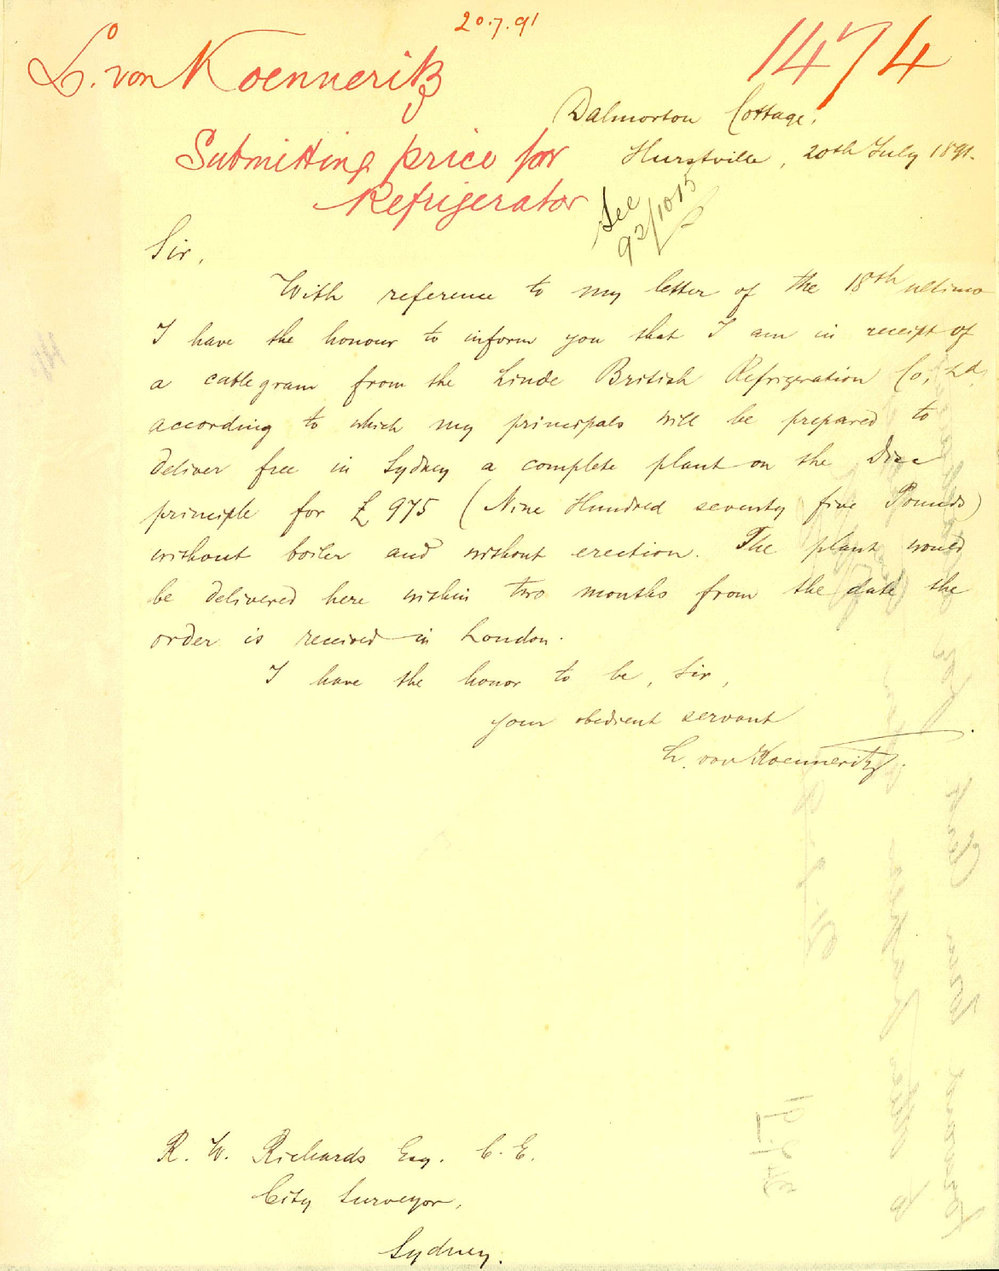 20.7.91
L. von Koenneritz
1474
Submitting price for
Refrigerator
Dalmorton Cottage,
Hurstville, 20th July 1891.
See
92/1015
Sir,
With reference to my letter of the 18th ultimo
I have the honour to inform you that I am in receipt of
a cablegram from the Linde British Refrigeration Co, Ld.
according to which my principals will be prepared to
deliver free in Sydney a complete plant on the
principle for £ 975 (Nine Hundred seventy five Pounds)
without boiler and without erection. The plant would
be delivered here within two months from the date the
order is received in London.
I have the honor to be, Sir,
your obedient servant
L. von Koenneritz.
R. W. Richards Esq. C. E.
City Surveyor,
Sydney.